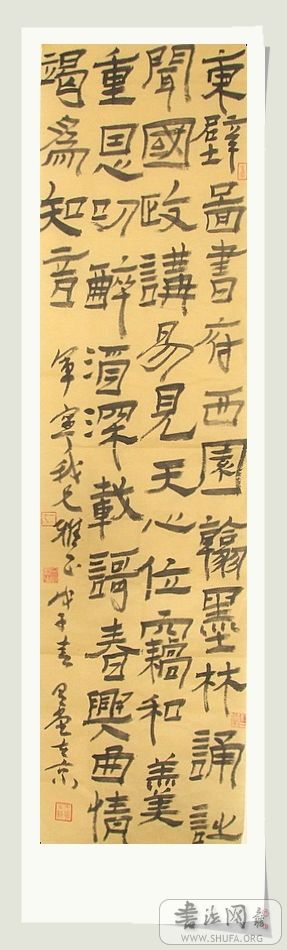 東壁圖書府西園翰墨林誦詩
聞國政講易見天心位竊和羹
重恩叨醉酒深載謌春興曲情
竭為知音
軍寧我兄雅正 戊子春
書法网
WWW.SHUFA.ORG